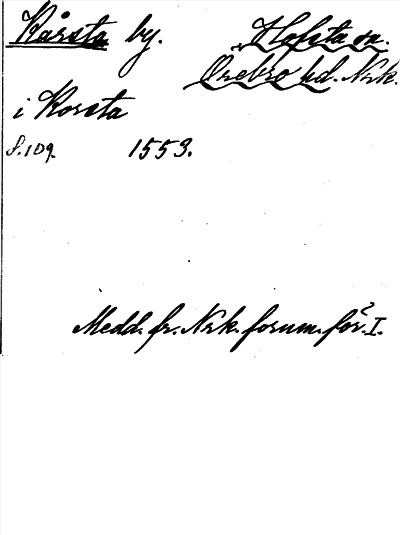 Kårsta by.
Hofsta sn.
Örebro hd. Nrk.
i Korsta
s. 109. 1553.
Medd. fr. Nrk. fornm. för. I.